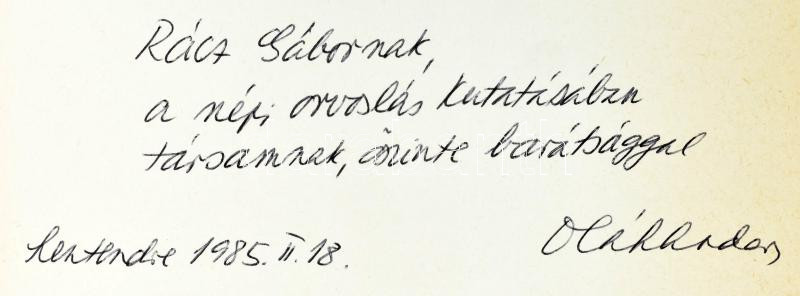 Rácz Gábornak,
a népi orvoslás kutatásában
társamnak, őszinte barátsággal
Szentendre 1985. II. 18.
Oláh Andor